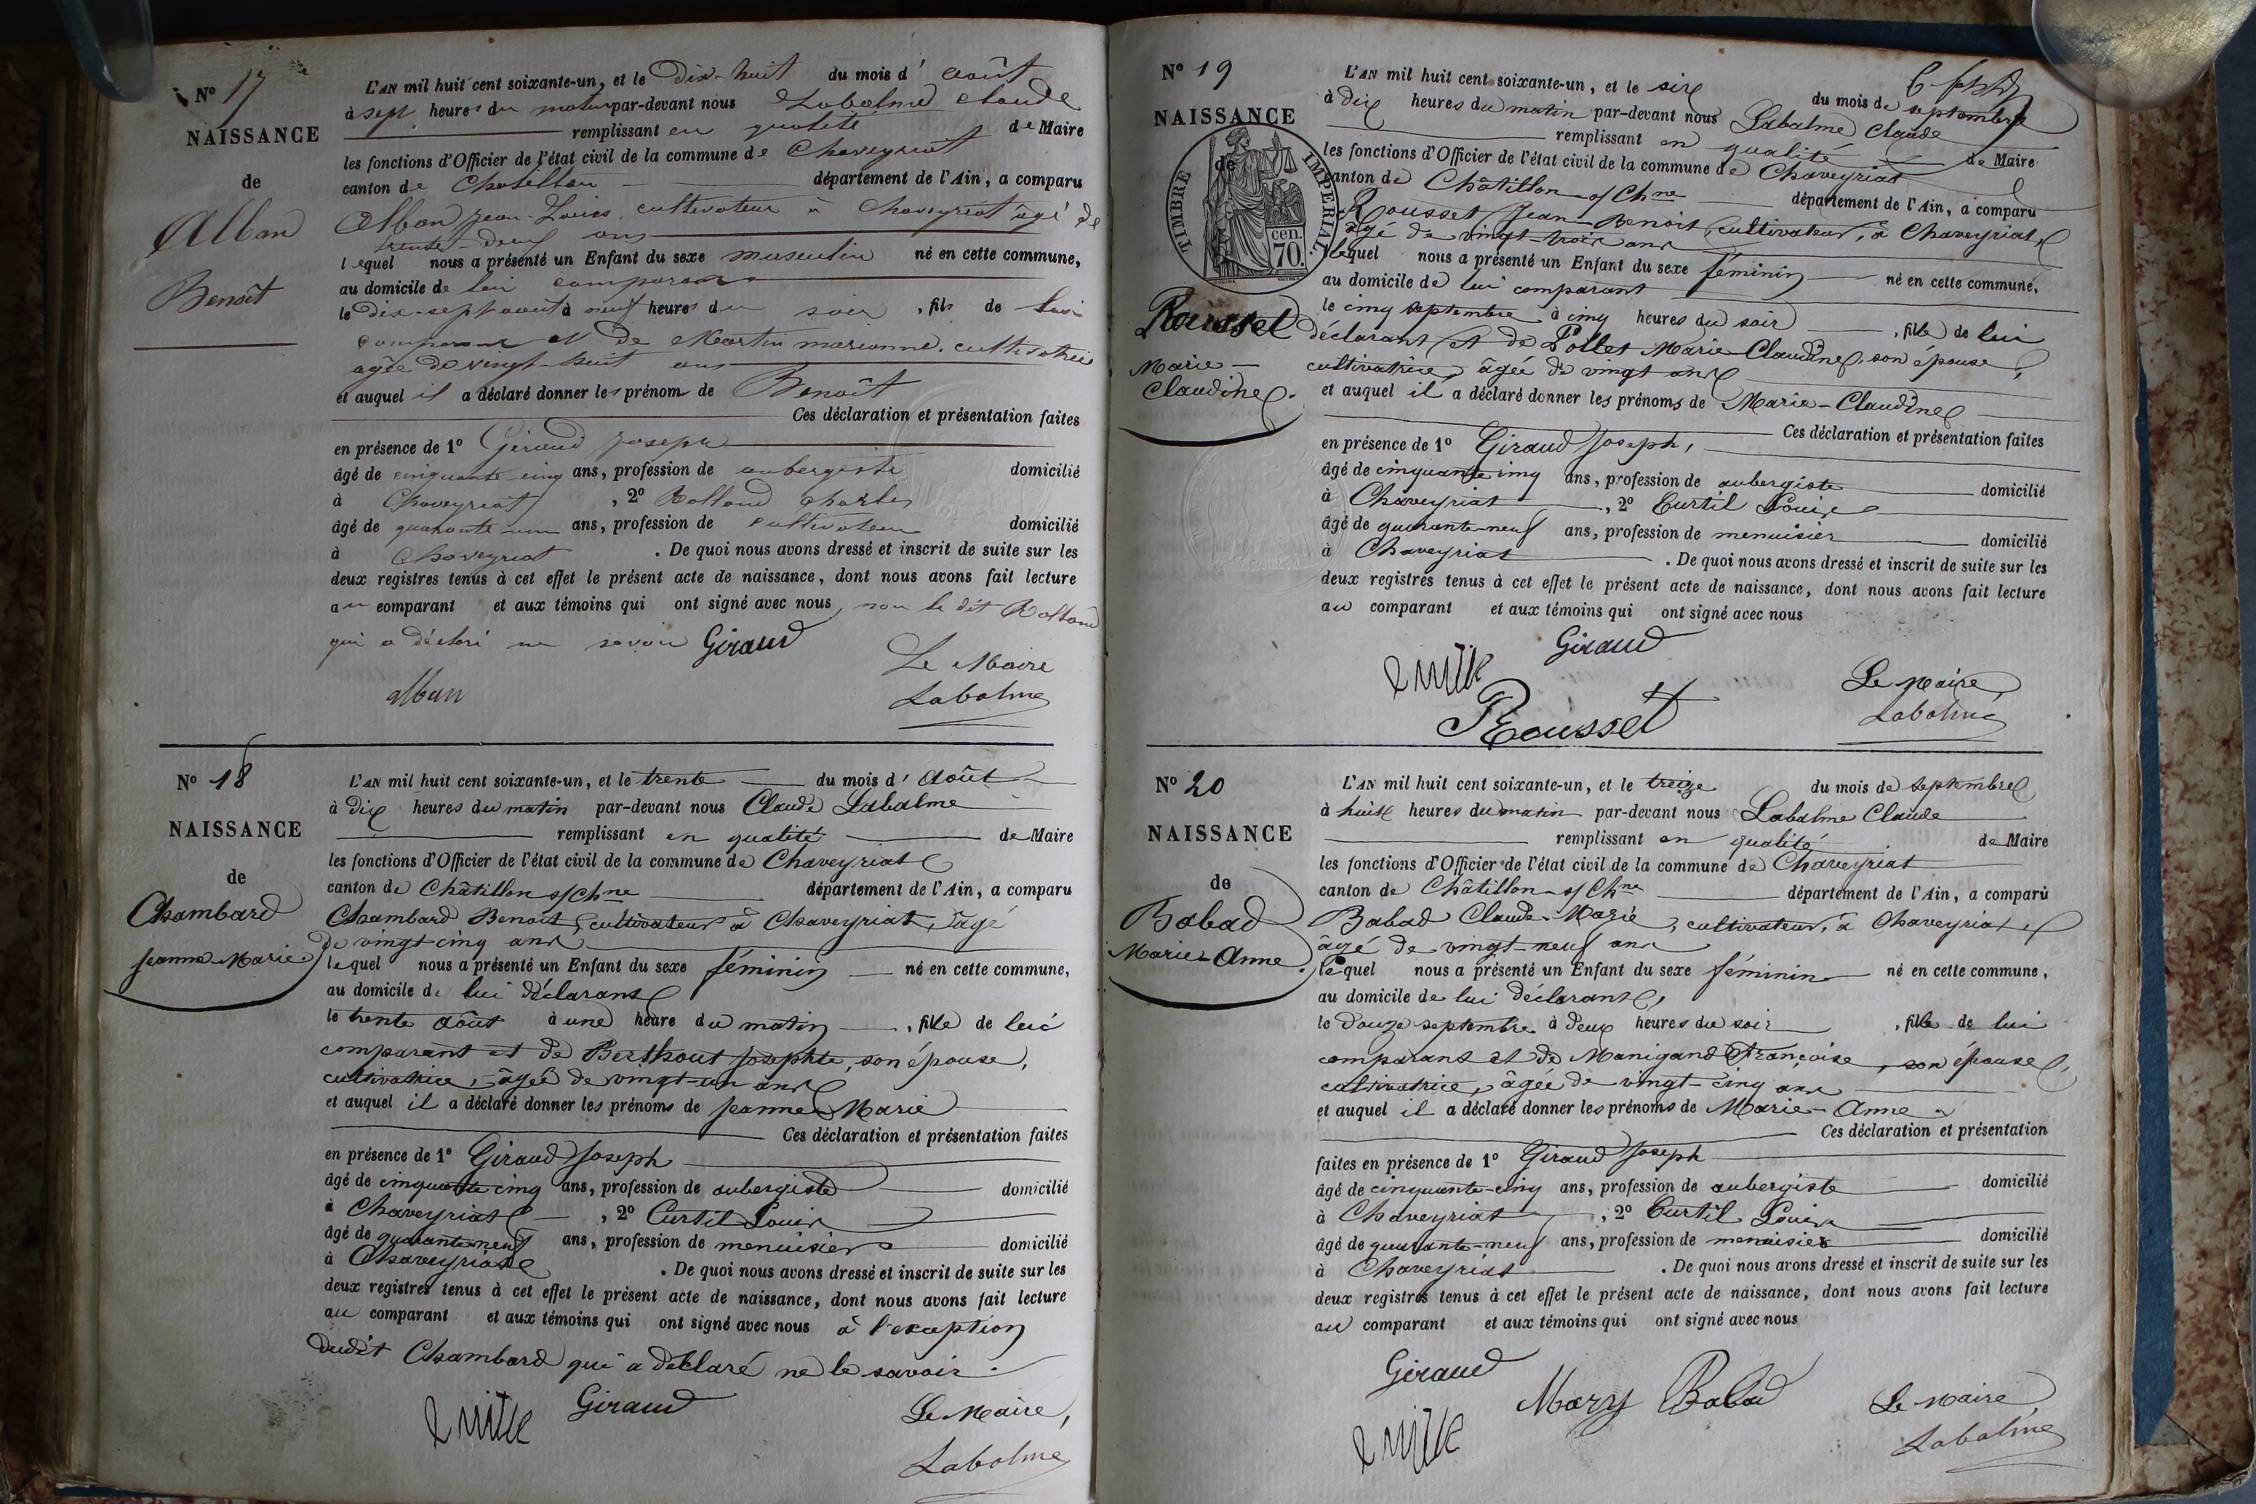 N° 17
NAISSANCE
de
Alban
Benoît
L'AN mil huit cent soixante-un, et le dix-huit du mois d' août
à sept heures du matin par-devant nous Labalme Claude
remplissant en qualité de Maire
les fonctions d'Officier de l'état civil de la commune de Chaveyriat
canton de Chatillon département de l'Ain, a comparu
Alban Jean-Louis, cultivateur à Chaveyriat âgé de
trente-deux ans
lequel nous a présenté un Enfant du sexe masculin né en cette commune,
au domicile de lui comparant
le dix-sept août à neuf heures du soir, fils de lui
comparant et de Martin marianne, cultivatrice
agée de vingt-huit ans
et auquel il a déclaré donner les prénom de Benoît
Ces déclaration et présentation faites
en présence de 1° Giraud Joseph
âgé de cinquante cinq ans, profession de aubergiste domicilié
à Chaveyriat, 2° Rolland Charles
âgé de quarante-un ans, profession de cultivateur domicilié
à Chaveyriat. De quoi nous avons dressé et inscrit de suite sur les
deux registres tenus à cet effet le présent acte de naissance, dont nous avons fait lecture
au comparant et aux témoins qui ont signé avec nous, non le dit Rolland
qui a déclaré ne savoir Giraud
Le Maire
alban Labalme
N° 18
NAISSANCE
de
Chambard
Jeanne-Marie
L'AN mil huit cent soixante-un, et le trente du mois d' Août
à dix heures du matin par-devant nous Claude Labalme
remplissant en qualité de Maire
les fonctions d'Officier de l'état civil de la commune de Chaveyriat
canton de Châtillon s/Chne département de l'Ain, a comparu
Chambard Benoit, cultivateur à Chaveyriat, âgé
de vingt-cinq ans
lequel nous a présenté un Enfant du sexe féminin né en cette commune,
au domicile de lui déclarant
le trente août à une heure du matin, fille de lui
comparant et de Berthout Josephte, son épouse,
cultivatrice, âgée de vingt-un ans
et auquel il a déclaré donner les prénoms de Jeanne Marie
Ces déclaration et présentation faites
en présence de 1° Giraud Joseph
âgé de cinquante cinq ans, profession de aubergiste domicilié
à Chaveyriat, 2° Curtil Louis
âgé de quarante-neuf ans, profession de menuisier domicilié
à Chaveyriat. De quoi nous avons dressé et inscrit de suite sur les
deux registres tenus à cet effet le présent acte de naissance, dont nous avons fait lecture
au comparant et aux témoins qui ont signé avec nous à l'exception
dudit Chambard qui a déclaré ne le savoir.
Giraud Le Maire,
Labalme
N° 19
NAISSANCE
de
TIMBRE IMPERIAL
70 cen.
Rousset
Marie-
Claudine
L'AN mil huit cent soixante-un, et le six du mois de septembre
à dix heures du matin par-devant nous Labalme Claude
remplissant en qualité de Maire
les fonctions d'Officier de l'état civil de la commune de Chaveyriat
canton de Châtillon s/Chne département de l'Ain, a comparu
Rousset Jean-Benoit, cultivateur, à Chaveyriat,
agé de vingt-trois ans
lequel nous a présenté un Enfant du sexe féminin né en cette commune,
au domicile de lui comparant
le cinq septembre à cinq heures du soir, fille de lui
déclarant et de Pollet Marie Claudine, son épouse,
cultivatrice, âgée de vingt ans
et auquel il a déclaré donner les prénoms de Marie-Claudine
Ces déclaration et présentation faites
en présence de 1° Giraud Joseph,
âgé de cinquante cinq ans, profession de aubergiste domicilié
à Chaveyriat, 2° Curtil Louis
âgé de quarante-neuf ans, profession de menuisier domicilié
à Chaveyriat. De quoi nous avons dressé et inscrit de suite sur les
deux registres tenus à cet effet le présent acte de naissance, dont nous avons fait lecture
au comparant et aux témoins qui ont signé avec nous
Giraud
Le Maire,
Rousset Labalme
N° 20
NAISSANCE
de
Babad
Marie-Anne.
L'AN mil huit cent soixante-un, et le treize du mois de septembre
à huit heures du matin par-devant nous Labalme Claude
remplissant en qualité de Maire
les fonctions d'Officier de l'état civil de la commune de Chaveyriat
canton de Châtillon s/Chne département de l'Ain, a comparu
Babad Claude-Marie, cultivateur, à Chaveyriat
âgé de vingt-neuf ans
lequel nous a présenté un Enfant du sexe féminin né en cette commune,
au domicile de lui déclarant,
le douze septembre à deux heures du soir, fille de lui
comparant et de Manigand Françoise, son épouse,
cultivatrice, âgée de vingt-cinq ans
et auquel il a déclaré donner les prénoms de Marie-Anne
Ces déclaration et présentation
faites en présence de 1° Giraud Joseph
âgé de cinquante-cinq ans, profession de aubergiste domicilié
à Chaveyriat, 2° Curtil Louis
âgé de quarante-neuf ans, profession de menuisier domicilié
à Chaveyriat. De quoi nous avons dressé et inscrit de suite sur les
deux registres tenus à cet effet le présent acte de naissance, dont nous avons fait lecture
au comparant et aux témoins qui ont signé avec nous
Giraud
Mary Babad Le Maire
Labalme